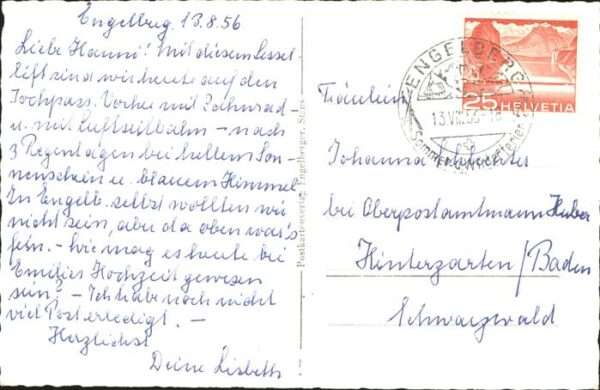 Engelberg 13.8.56
Liebe Hanni! Mit diesem Sessel-
lift sind wir heute auf den
Jochpass. Vorher mit Zahnrad-
u. mit Luftseilbahn – nach
3 Regentagen bei hellem Son-
nenschein u. blauem Himmel
In Engelb. selbst wollten wir
nicht sein, aber da oben war's
fein. – Wie mag es heute bei
Emilies Hochzeit gewesen
sein? – Ich habe noch nicht
viel Post erledigt. –
Herzlichst
Deine Lisbeth
Postkartenverlag Engelberger, Stans
25 HELVETIA
ENGELBERG
13.VIII.56-18
Sommer u. Winterferien
Fräulein
Johanna
bei Oberpostamtmann Huber
Hinterzarten/Baden
Schwarzwald